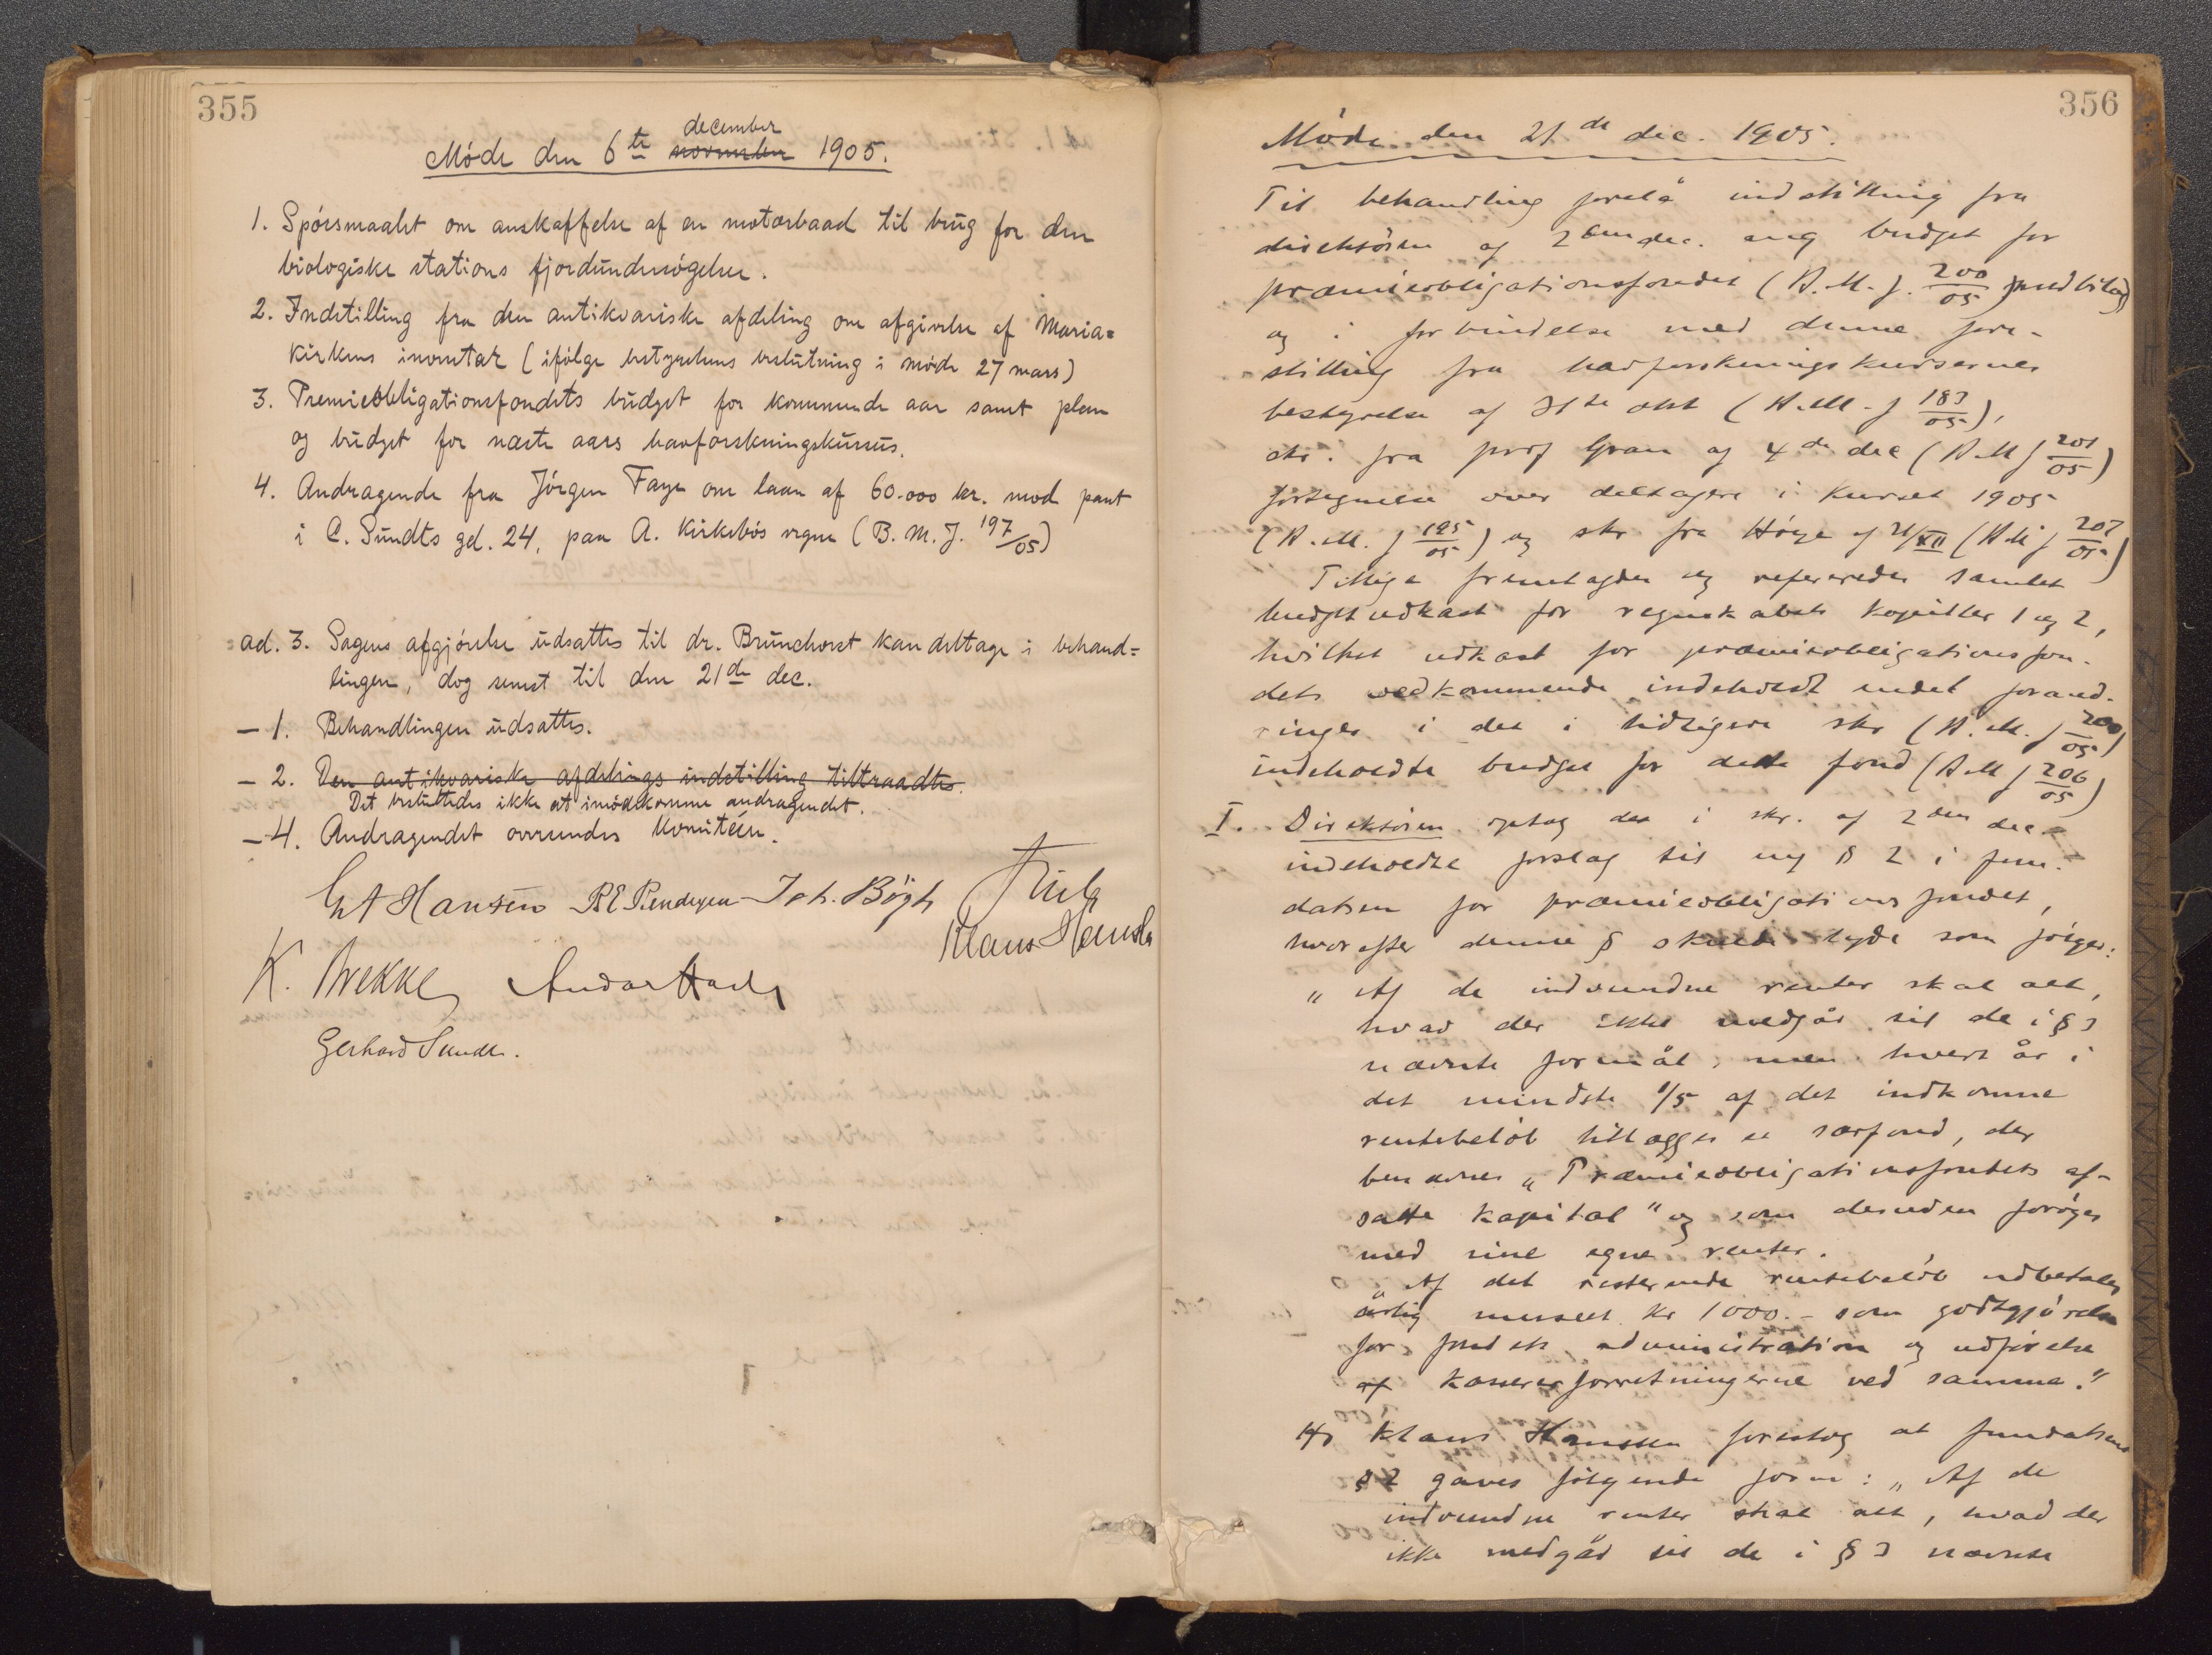 355
Møde den 6te november december 1905.
1. Spørsmaalet om anskaffelse af en motorbaad til brug for den
biologiske stations fjordundersøgelser.
2. Indstilling fra den antikvariske afdeling om afgivelse af Maria=
kirkens inventar (ifølge bestyrelsens beslutning i møde 27 mars)
3. Premieobligationsfondets budget for kommende aar samt plan
og budget for næste aars havforskningskursus.
4. Andragende fra Jörgen Faye om laan af 60.000 kr. mod pant
i C. Sundts gd. 24, paa A. Kirkebøs vegne (B. M. J. 197/05)
ad. 3. Sagens afgjørelse udsattes til dr. Brunchorst kan deltage i behand=
lingen, dog senest til den 21de dec.
— 1. Behandlingen udsattes.
— 2. Den antikvariske afdelings indstilling tiltraadtes.
Det besluttedes ikke at imødekomme andragendet.
— 4. Andragendet oversendes komitéen.
Joh. Bøgh
Hansen
Klaus
K. Brekke
Gerhard Sunde.
356
Møde den 21de dec. 1905.
Til behandling forelå indstilling fra
direktøren af 2den dec. ang budget for
præmieobligationsfondet (B. M. J. 200/05) med bilag
og i forbindelse med denne fore-
stilling fra havforskningskursernes
bestyrelse af 31te okt (B. M. J 183/05),
skr. fra prof Gran af 4de dec (B. M J 201/05)
fortegnelse over deltagere i kurset 1905
(B. M. J 195/05) og skr fra Høye af 21/XII (B M J 207/05)
Tillige fremlagdes og refereredes samlet
budgetudkast for regnskabets kapitler 1 og 2,
hvilket udkast for præmieobligationsfon-
dets vedkommende indeholdt endel forand-
ringer i det i tidligere skr (B. M. J 200/05)
indeholdte budget for dette fond (B M J 206/05)
I. Direktøren optog det i skr. af 2den dec
indeholdte forslag til ny § 2 i fun-
datsen for præmieobligationsfondet,
hvorefter denne § skulde lyde som følger:
„Af de indvundne renter skal alt,
hvad der ikke medgår til de i § 3
nævnte formål, men hvert år i
det mindste 1/5 af det indkomne
rentebeløb tillægges et særfond, der
benævnes „Præmieobligationsfondets af-
satte kapital" og som desuden forøges
med sine egne renter.
„Af det resterende rentebeløb udbetales
årlig museet kr 1000.- som godtgjørelse
for fondets administration og udførelse
af kassererforretningerne ved samme."
Klaus Hanssen foreslog at fundatsens
§ 2 gaves følgende form: „Af de
indvundne renter skal alt, hvad der
ikke medgår til de i § 3 nævnte